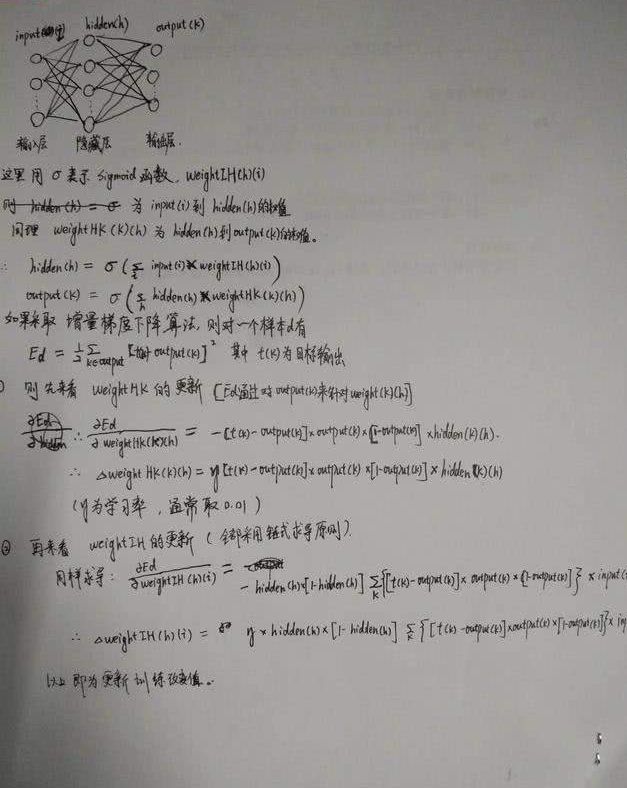 input(i) hidden(h) output(k)
输入层 隐藏层 输出层.
这里用 σ 表示 sigmoid 函数, weightIH(h)(i)
则 hidden(h) = σ 为 input(i) 到 hidden(h)的权值
同理 weightHK(k)(h) 为 hidden(h)到output(k)的权值。
∴ hidden(h) = σ(Σi input(i)×weightIH(h)(i))
output(k) = σ(Σh hidden(h)×weightHK(k)(h))
如果采取 增量梯度下降算法, 则对一个样本d有
Ed = 1/2 Σk∈output [t(k)-output(k)]² 其中 t(k)为目标输出
① 则先来看 weightHK 的更新 [Ed通过对output(k)来针对weight(k)(h)]
∂Ed ∴ ∂Ed/∂weightHK(k)(h) = -[t(k)-output(k)]×output(k)×[1-output(k)]×hidden(k)(h).
∴ △weight HK(k)(h) = η[t(k)-output(k)]×output(k)×[1-output(k)]×hidden(k)(h)
(η为学习率, 通常取0.01)
② 再来看 weightIH 的更新 (全部采用链式求导原则).
同样求导: ∂Ed/∂weightIH(h)(i) = -hidden(h)×[1-hidden(h)] Σk{[t(k)-output(k)]×output(k)×[1-output(k)]}×input(i
∴ △weightIH(h)(i) = η×hidden(h)×[1-hidden(h)] Σk{[t(k)-output(k)]×output(k)×[1-output(k)]}×inp
以上即为更新训练改变值。